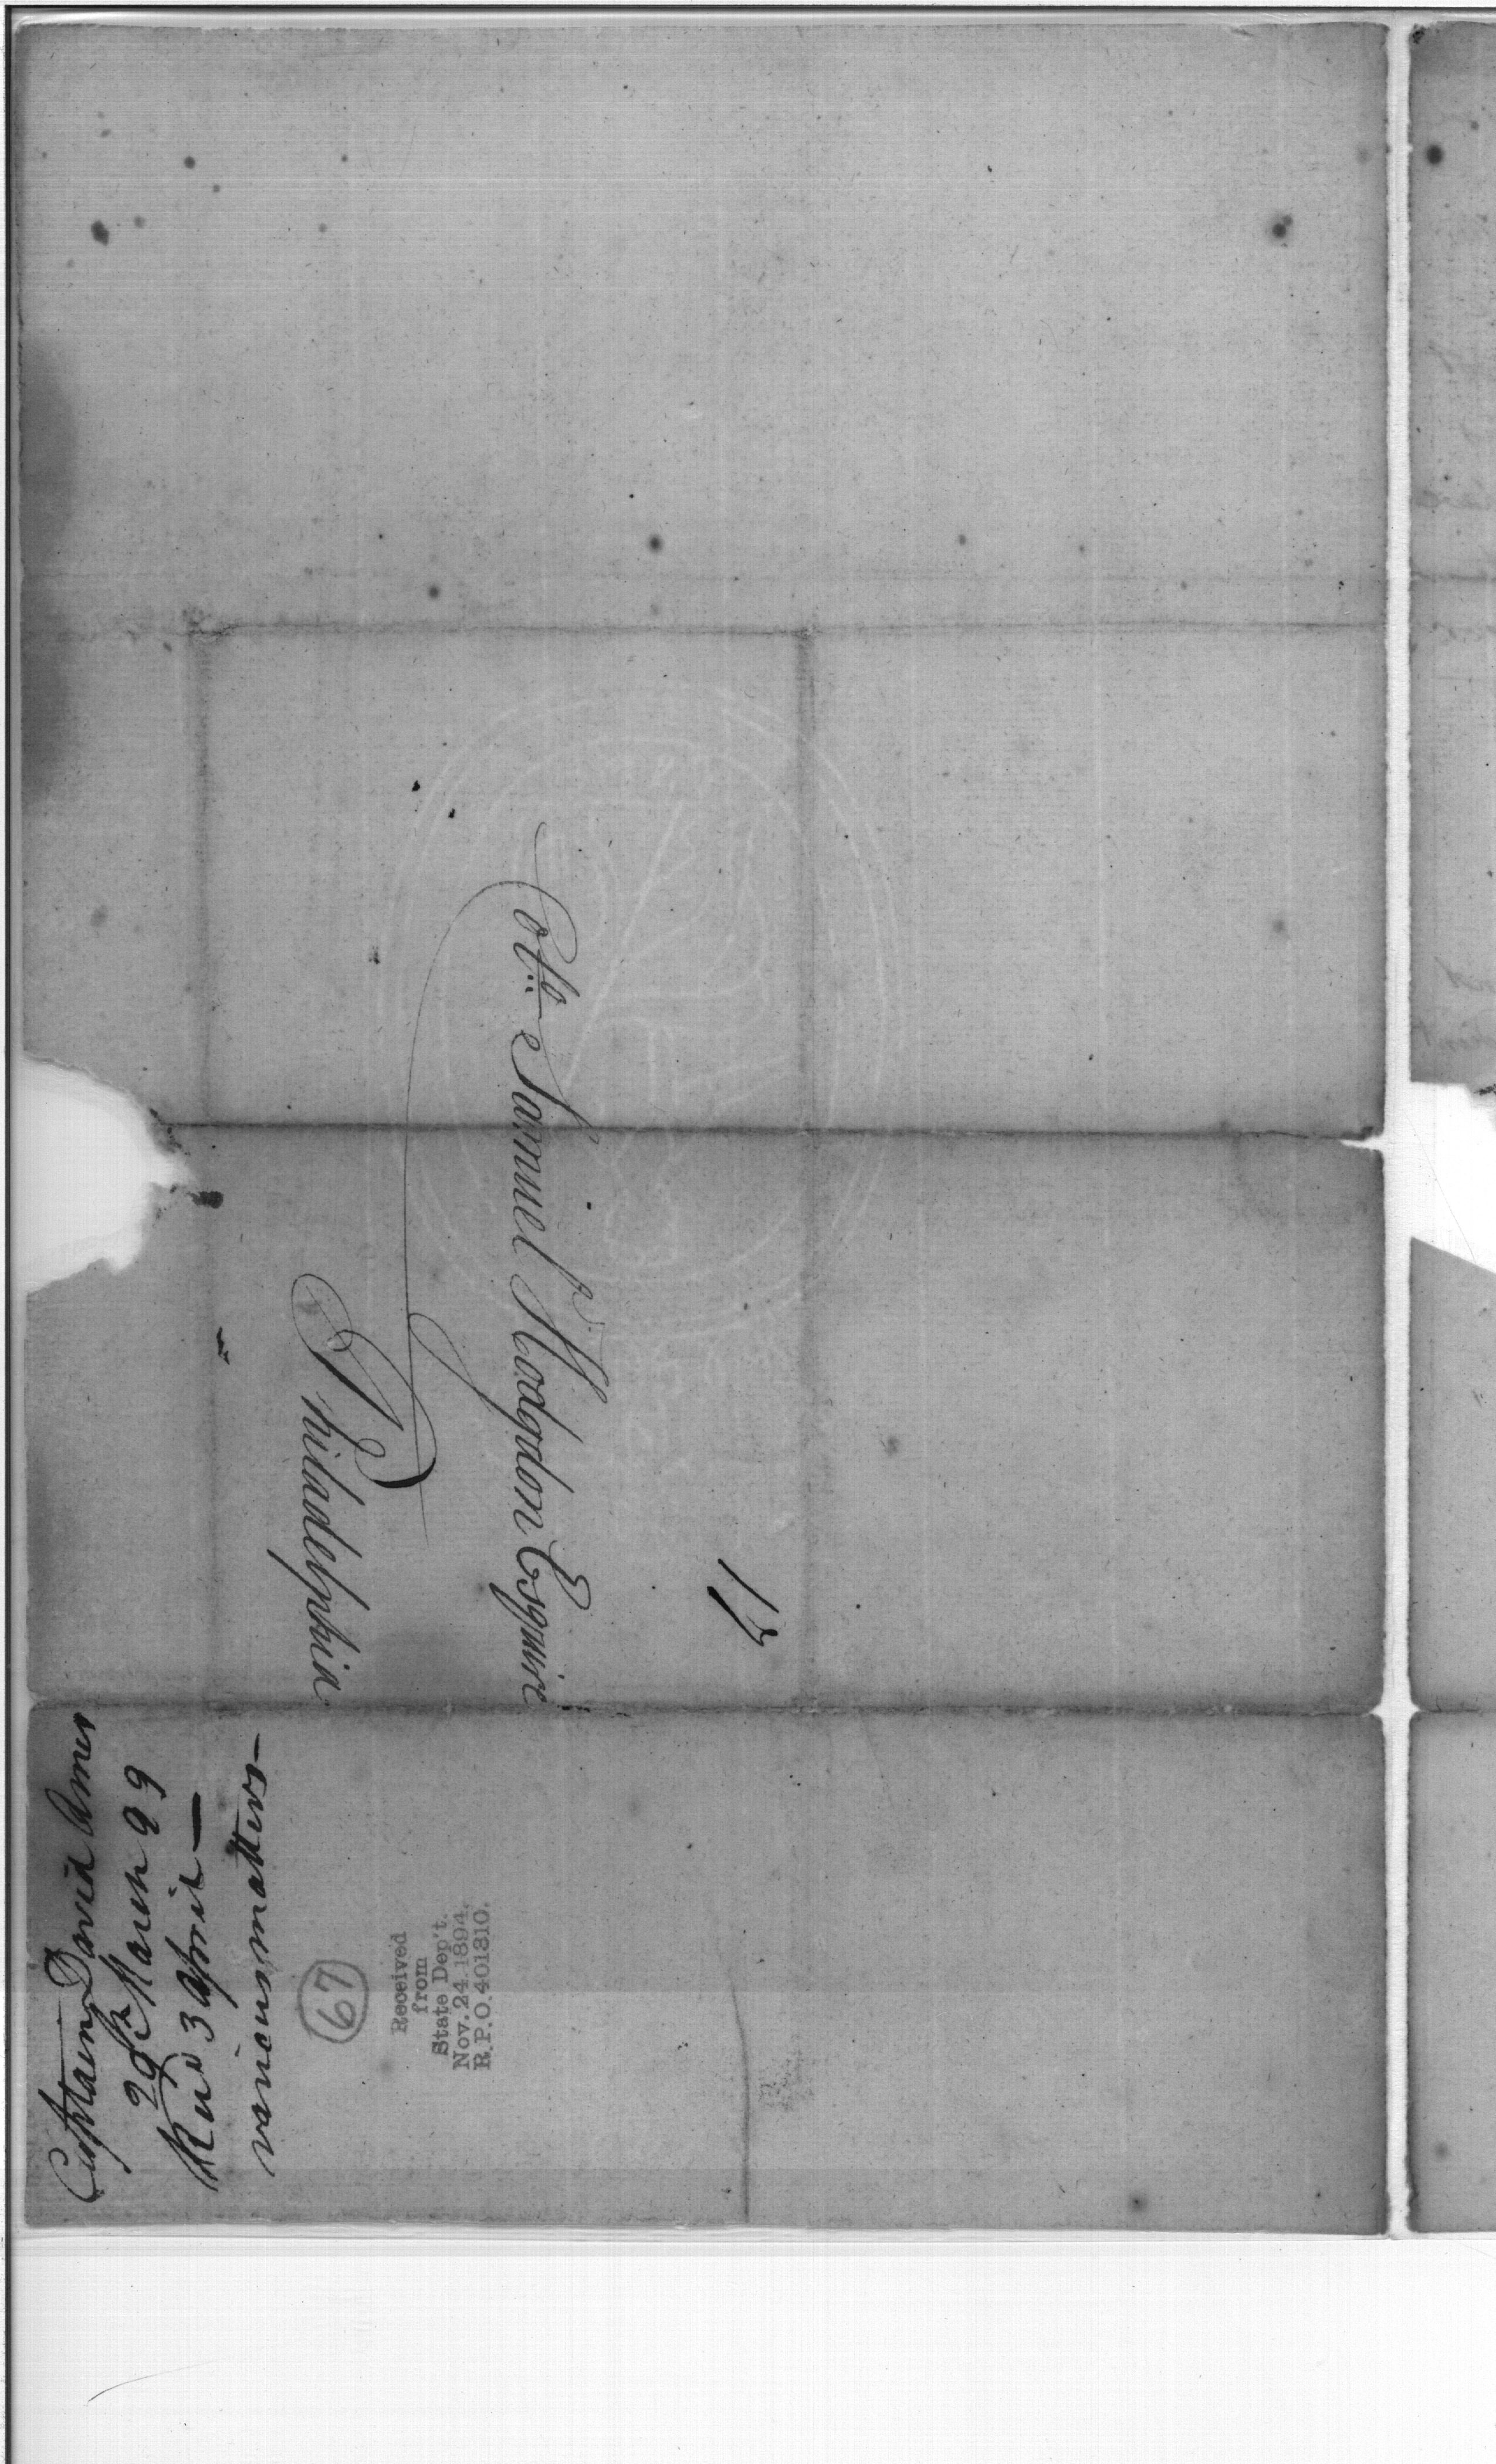 Coll.o Samuel Hodgdon Esquire
Philadelphia
17
Captain David Ames
29th March 99
Recd 3 April —
various matters —
67
Received
from
State Dep't.
Nov. 24. 1894.
R.P.O. 401310.